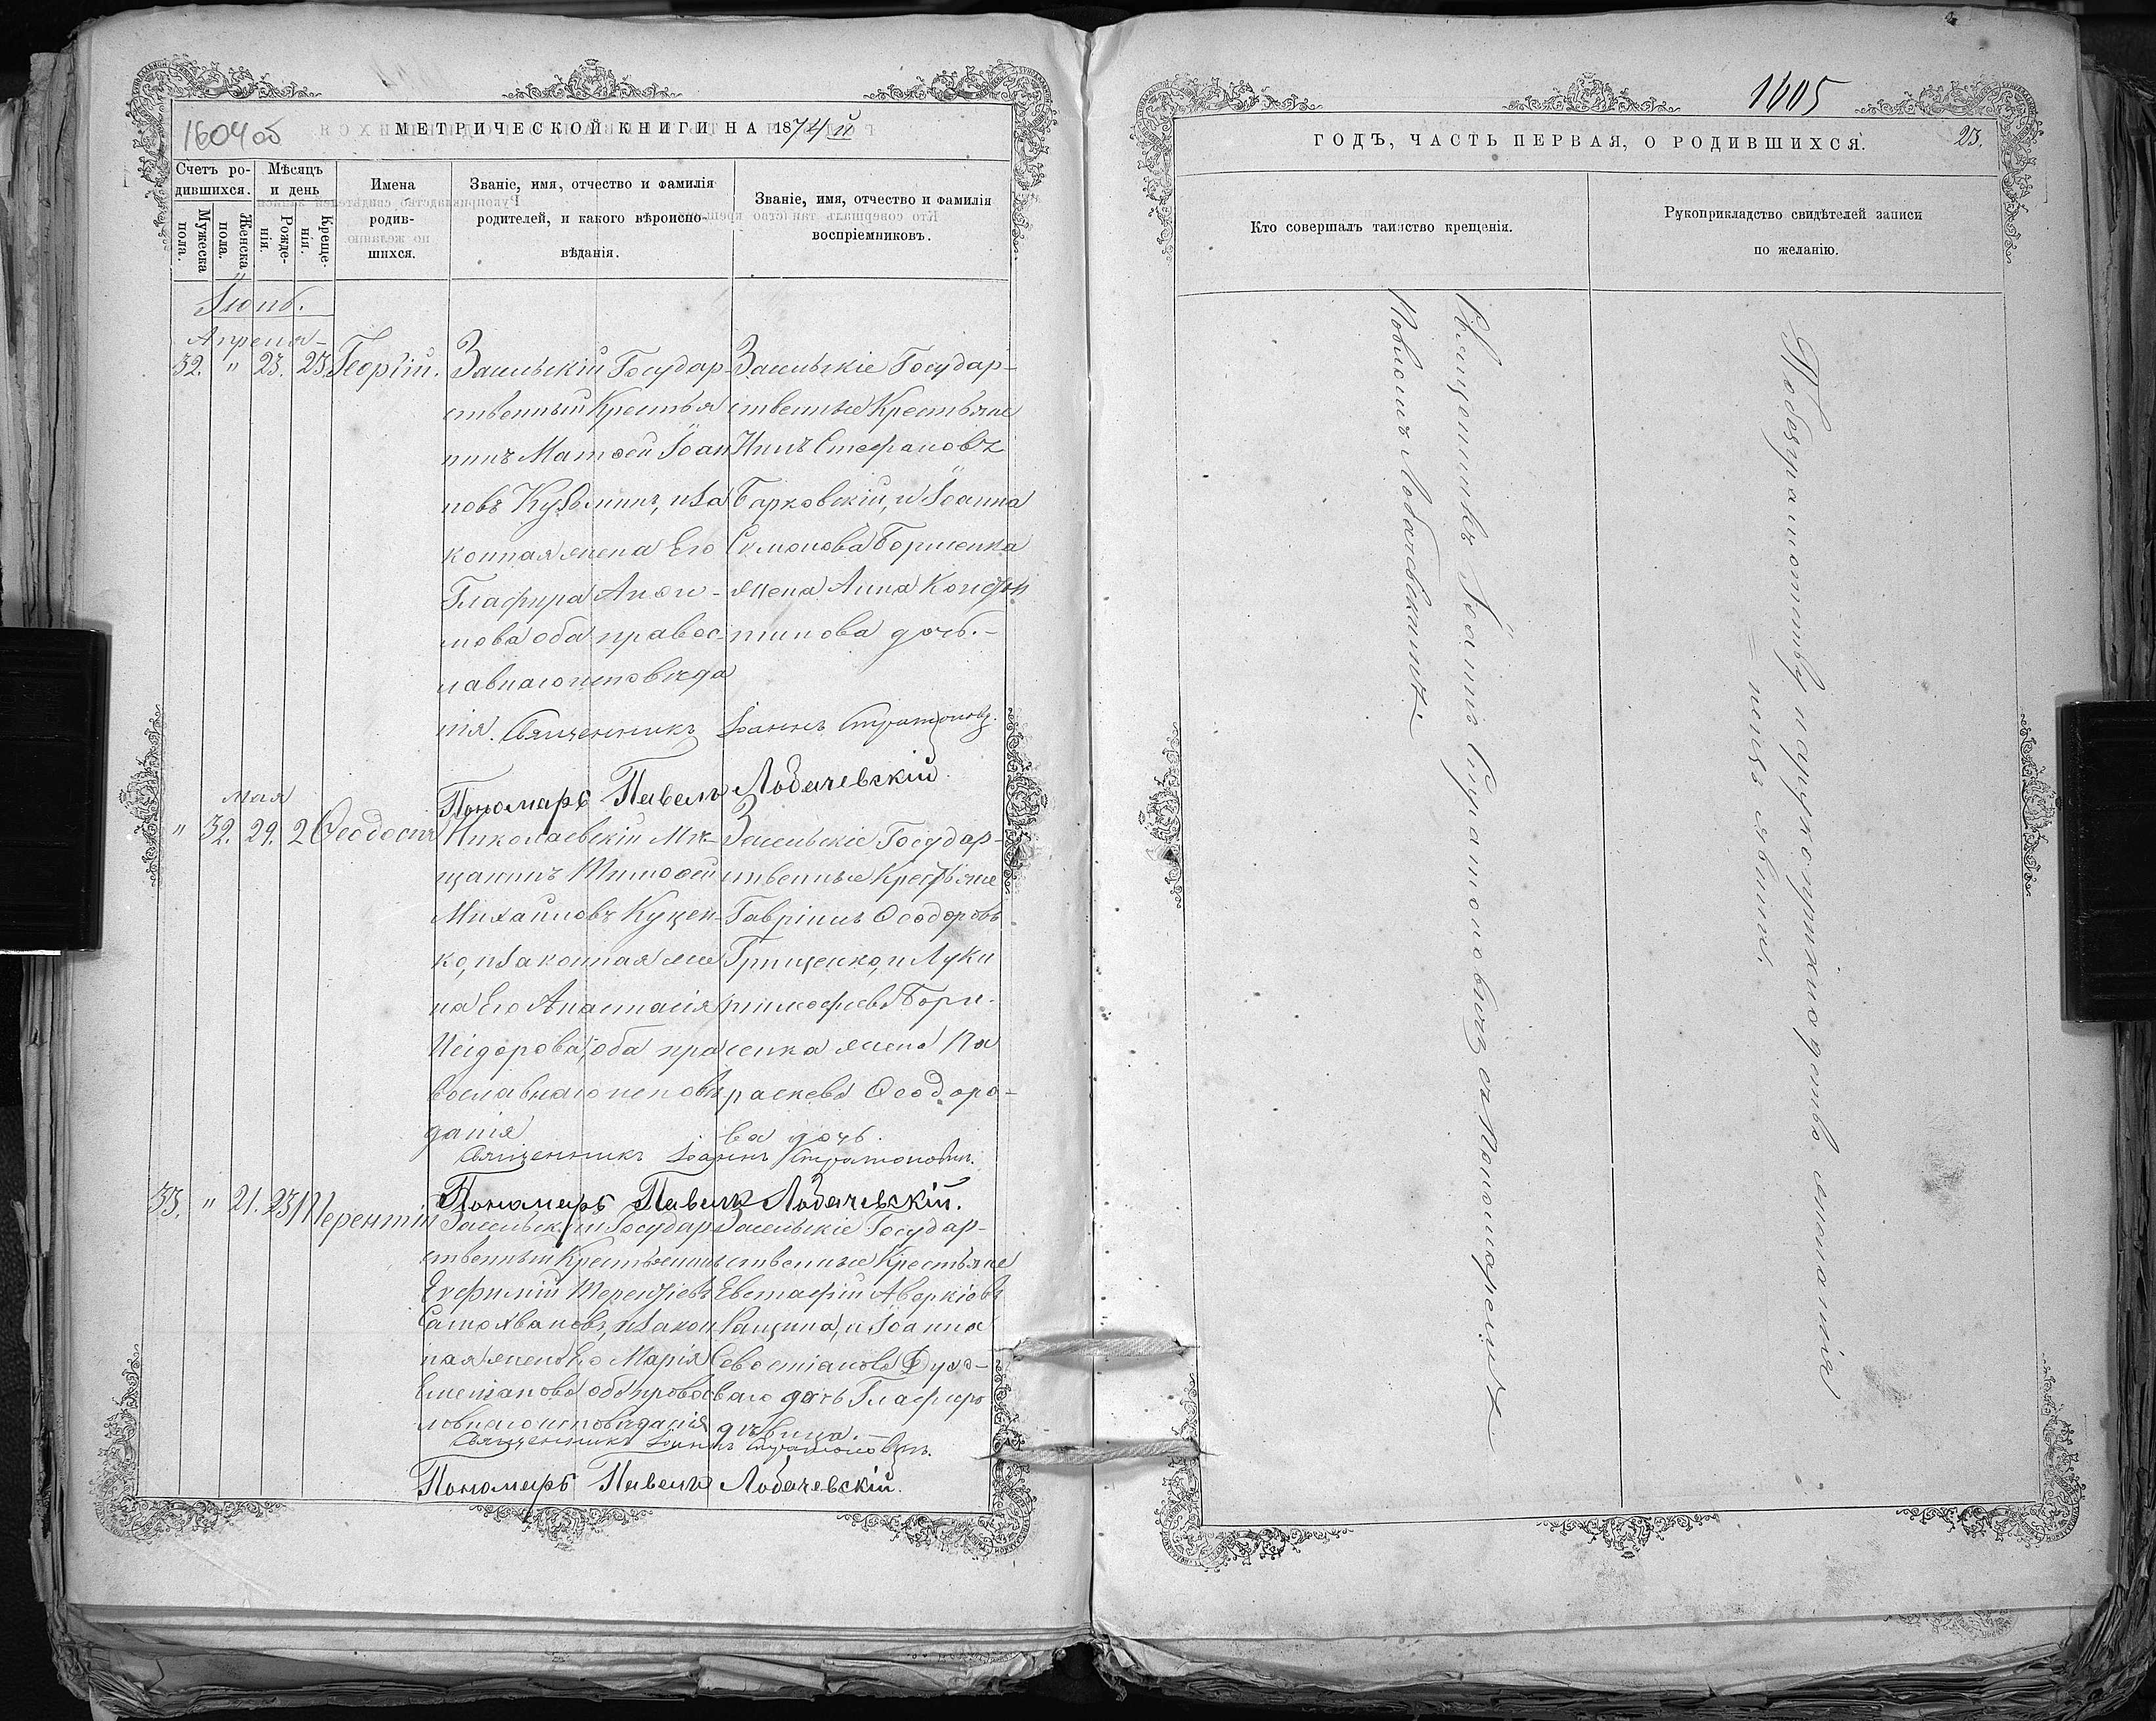 1604 об
МЕТРИЧЕСКОЙ КНИГИ НА 1874 й
Счетъ ро-
дившихся.
Мужеска
пола.
Женска
пола.
Мѣсяцъ
и день
Рожде-
нія.
Креще-
нія.
Имена
родив-
шихся.
Званіе, имя, отчество и фамилія
родителей, и какого вѣроиспо-
вѣданія.
Званіе, имя, отчество и фамилія
воспріемниковъ.
Апреля
32. " 23. 23 Георгій.
Засельскій Государ-
ственный Крестья
нинъ Матѳей Іоан
новъ Кузьминъ, и За
конная жена Его
Глафира Анѳи-
мова оба правос-
лавнаго исповѣда
нія.
Засельскіе Государ-
ственные Крестьяне
Нилъ Стефановъ
Барковскій, и Іоанна
Семонова Борщенка
жена Анна Конфи
тинова дочь.-
Священникъ Іоаннъ Стратоновъ.
Пономарь Павелъ Лобачевскій.
мая
" 32. 29. 2 Ѳеодосія
Николаевскій Мѣ-
щанинъ Тимоѳей
Михайловъ Куцен-
ко, и Законная же
на Его Анастасія
Исідорова, оба пра
вославнаго исповѣ
данія
Засельскіе Государ-
ственные Крестьяне
Гавріилъ Ѳеодоровъ
Грищенко, и Луки
Тимоѳеева Бори-
сенка жена Па
раскева Ѳеодоро-
ва дочь.
Священникъ Іоаннъ Стратоновичъ.
Пономарь Павелъ Лобачевскій.
33. " 21. 23 Терентій
Засельскій Государ
ственный Крестьянинъ
Евфимій Терентіевъ
Самохваловъ, и Закон
ная жена Его Марія
Емеліанова оба правос
лавнаго исповѣданія
Засельскіе Государ-
ственные Крестьяне
Евстафій Аворкіовъ
Ращина, и Іоанна
Севостіанова
дочь Глафира
дѣвица.-
Священникъ Іоаннъ Стратоновичъ.
Пономарь Павелъ Лобачевскій.
1605
ГОДЪ, ЧАСТЬ ПЕРВАЯ, О РОДИВШИХСЯ.
23.
Кто совершалъ таинство крещенія.
Рукоприкладство свидѣтелей записи
по желанію.
Священникъ Іоаннъ Стратоновичъ съ Пономаремъ
Павломъ Лобачевскимъ.
По безграмотству и рукоприкладство